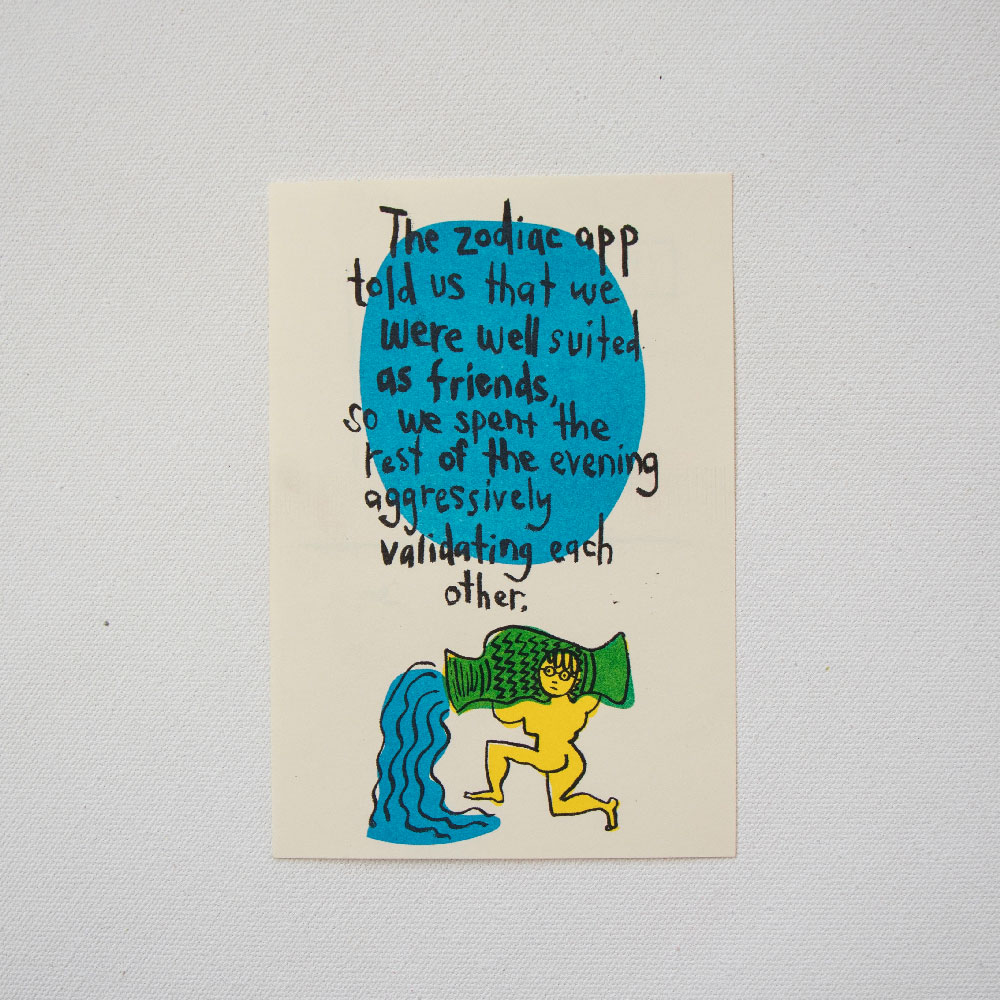 The zodiac app
told us that we
were well suited
as friends,
so we spent the
rest of the evening
aggressively
validating each
other.